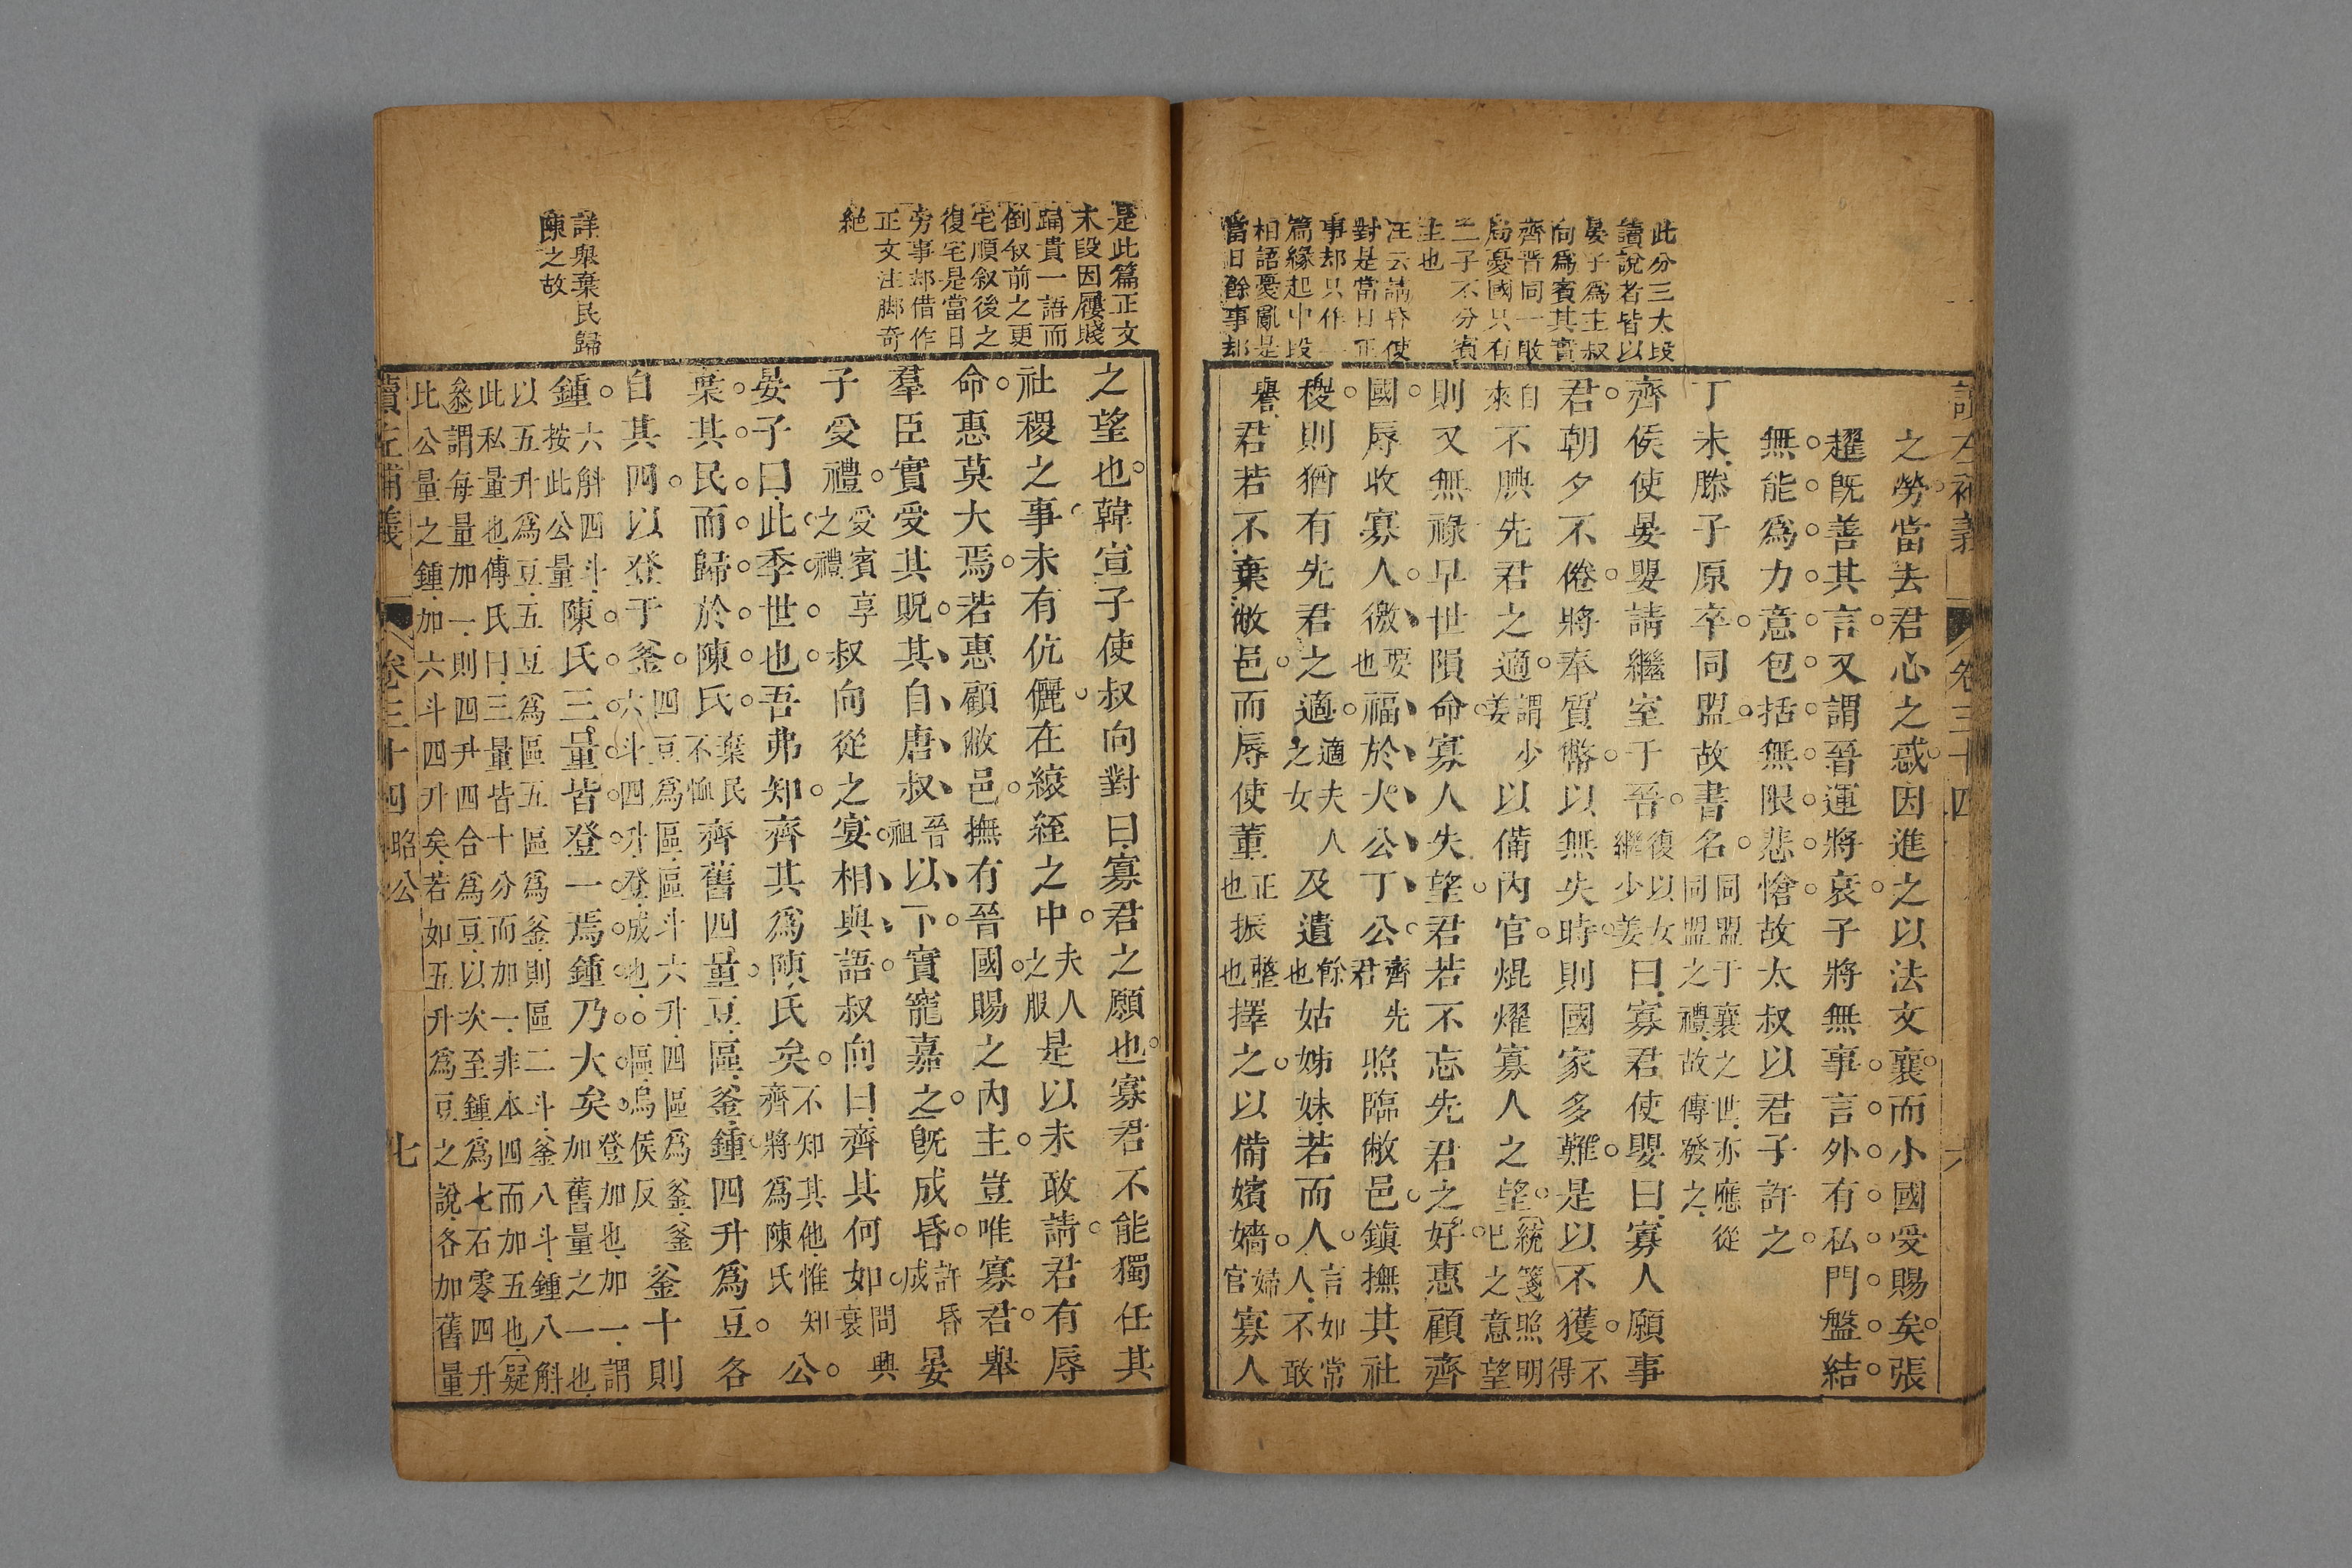 此分三大段
讀說者皆以
晏子爲主叔
向爲賓其實
齊晉同一敗
局憂國只有
二子不分賓
主也
汪云請昏使
對是當日正
事却只作一
篇緣起中段
相語憂亂是
當日餘事却
讀左補義 卷三十四 六
之勞當去君心之惑因進之以法文襄而小國受賜矣張
趯旣善其言又謂晉運將衰子將無事言外有私門盤結
無能爲力意包括無限悲愴故太叔以君子許之
丁未滕子原卒同盟故書名同盟于襄之世亦應從同盟之禮故傳發之
齊侯使晏嬰請繼室于晉復以女繼少姜曰寡君使嬰曰寡人願事
君朝夕不倦將奉質幣以無失時則國家多難是以不獲不得
自來不腆先君之適謂少姜以備內官焜燿寡人之望〔統箋〕照明望也之意
則又無祿早世隕命寡人失望君若不忘先君之好惠顧齊
國辱收寡人徼要也福於大公丁公齊先君照臨敝邑鎭撫其社
稷則猶有先君之適適夫人之女及遺餘也姑姊妹若而人言如常人不敢
譽君若不棄敝邑而辱使董正也振整也擇之以備嬪嬙婦官寡人
是此篇正文
末段因屨賤
踊貴一語而
倒敘前之更
宅順敘後之
復宅是當日
旁事却借作
正文注脚奇
絶
詳舉棄民歸
陳之故
之望也韓宣子使叔向對曰寡君之願也寡君不能獨任其
社稷之事未有伉儷在縗絰之中夫人之服是以未敢請君有辱
命惠莫大焉若惠顧敝邑撫有晉國賜之內主豈唯寡君舉
羣臣實受其貺其自唐叔晉祖以下實寵嘉之旣成昏許昏成晏
子受禮受賓享之禮叔向從之宴相與語叔向曰齊其何如問興衰
晏子曰此季世也吾弗知齊其爲陳氏矣不知其他惟知齊將爲陳氏公
棄其民而歸於陳氏棄民不恤齊舊四量豆區釜鍾四升爲豆各
自其四以登于釜四豆爲區區斗六升四區爲釜釜六斗四升登成也區烏侯反釜十則
鍾六斛四斗按此公量陳氏三量皆登一焉鍾乃大矣登加也加一謂加舊量之一也
以五升爲豆五豆爲區五區爲釜則區二斗釜八斗鍾八斛
此私量也傳氏曰三量皆十分而加一非本四而加五也〔疑
叅〕謂每量加一則四升四合爲豆以次至鍾爲七石零四升
比公量之鍾加六斗四升矣若如五升爲豆之說各加舊量
讀左補義 卷三十四 昭公 七